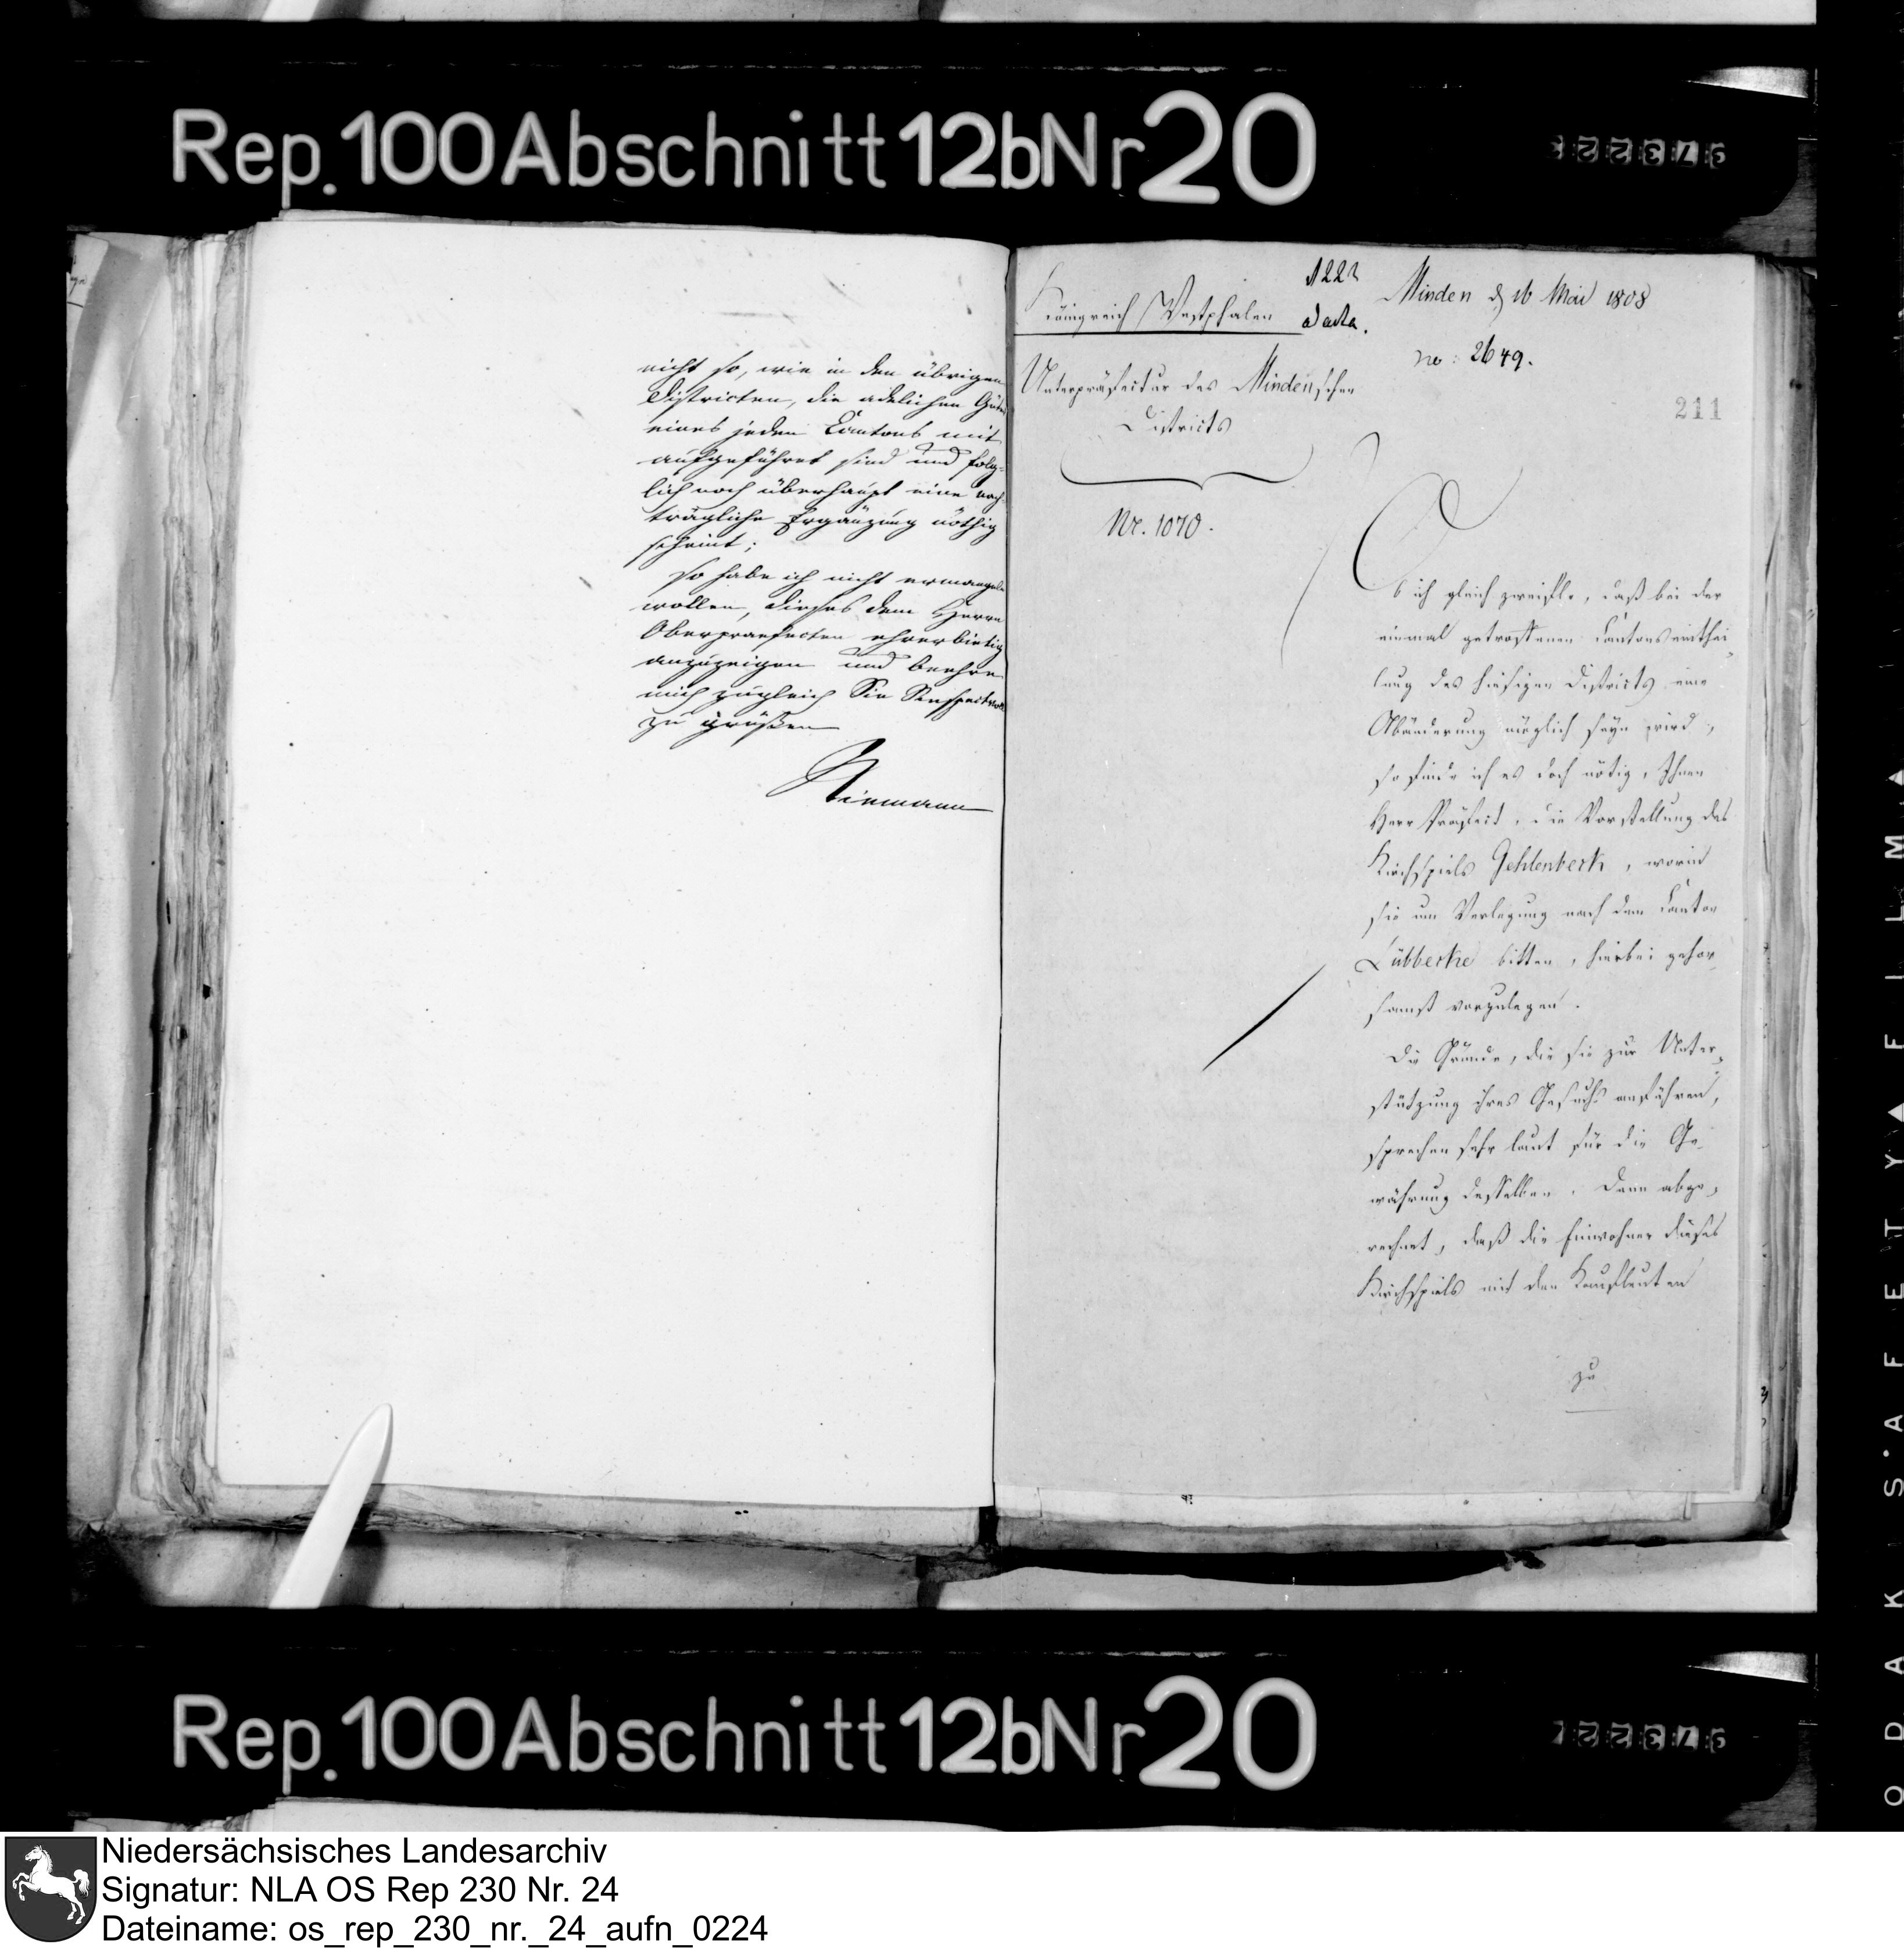 Rep. 100 Abschnitt 12b Nr 20
nicht so, wie in den übrigen
Districten, die adelichen Güter
eines jeden Cantons mit
aufgeführet sind und folg-
lich noch überhaupt eine nach-
trägliche Ergänzung nöthig
scheint;
so habe ich nicht ermangeln
wollen, dieses dem Herrn
Oberpraefecten ehrerbietig
anzuzeigen und beehre
mich zugleich Sie Respectvoll
zu grüßen
Niemann
Königreich Westphalen
Unterpräfectur des Mindenschen
Districts
Nr. 1070.
ad acta.
Minden d 16 Mai 1808
no: 2649.
211
Ob ich gleich zweifle, daß bei der
einmal getroffenen Cantonseinthei-
lung des hiesigen Districts eine
Abänderung möglich seyn wird,
so finde ich es doch nötig, Ihnen
Herr Präfect, die Vorstellung des
Kirchspiels Gehlenbeck, worin
sie um Verlegung nach dem Canton
Lübbecke bitten, hierbei gehor-
samst vorzulegen.
Die Gründe, die sie zur Unter-
stützung ihres Gesuchs anführen,
sprechen sehr laut für die Ge-
währung desselben. Denn abge-
rechnet, daß die Einwohner dieses
Kirchspiels mit den Kaufleuten
zu
Rep. 100 Abschnitt 12b Nr 20
KODAK SAFETY FILM
Niedersächsisches Landesarchiv
Signatur: NLA OS Rep 230 Nr. 24
Dateiname: os_rep_230_nr._24_aufn_0224